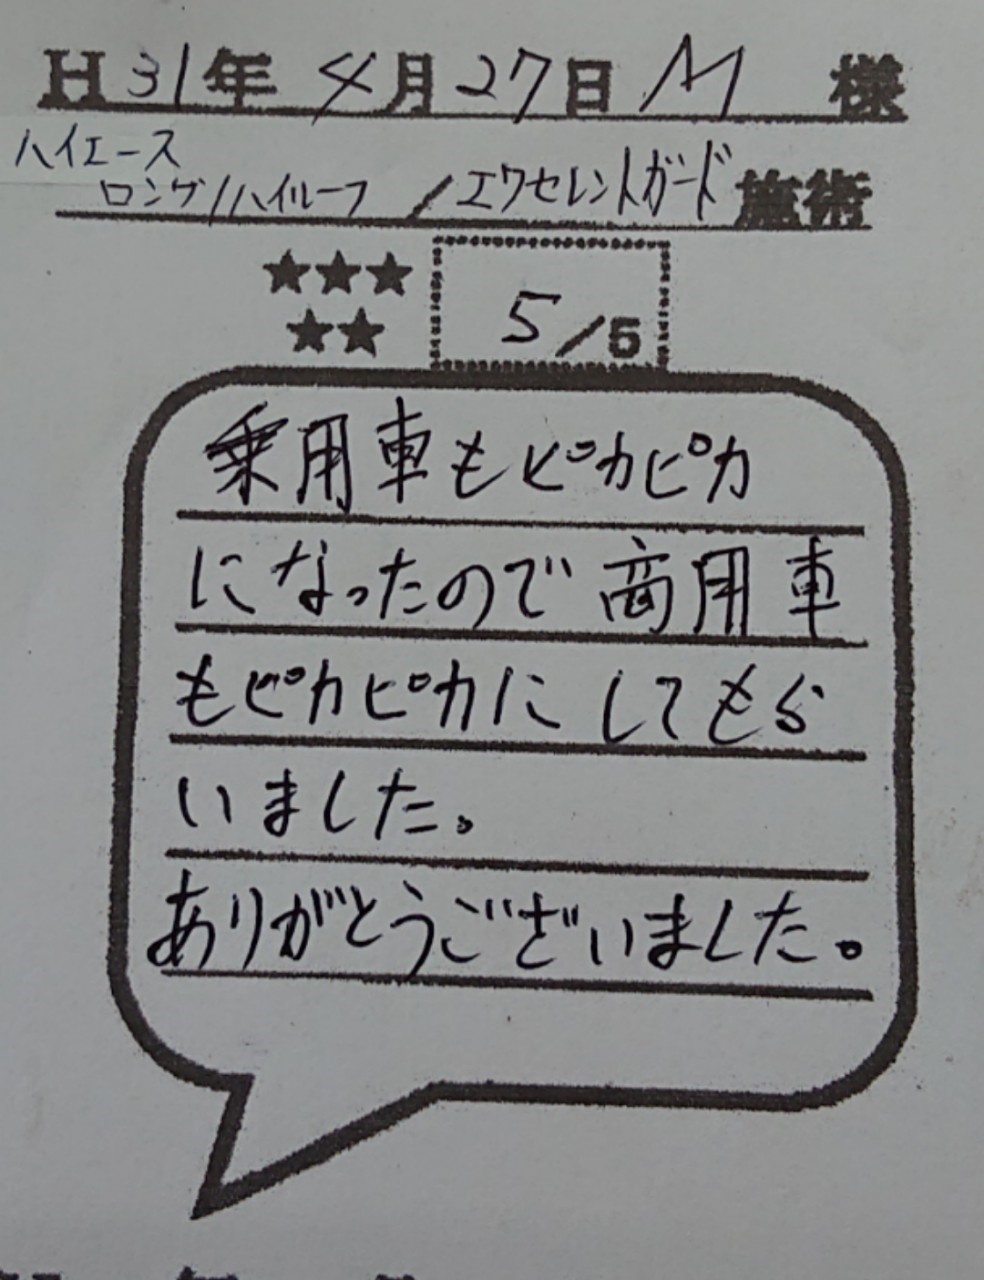 H31年 4月27日 M 様
ハイエース
ロング/ハイルーフ /エクセレントガード 施術
★★★
★★
5/5
乗用車もピカピカ
になったので商用車
もピカピカにしてもら
いました。
ありがとうございました。